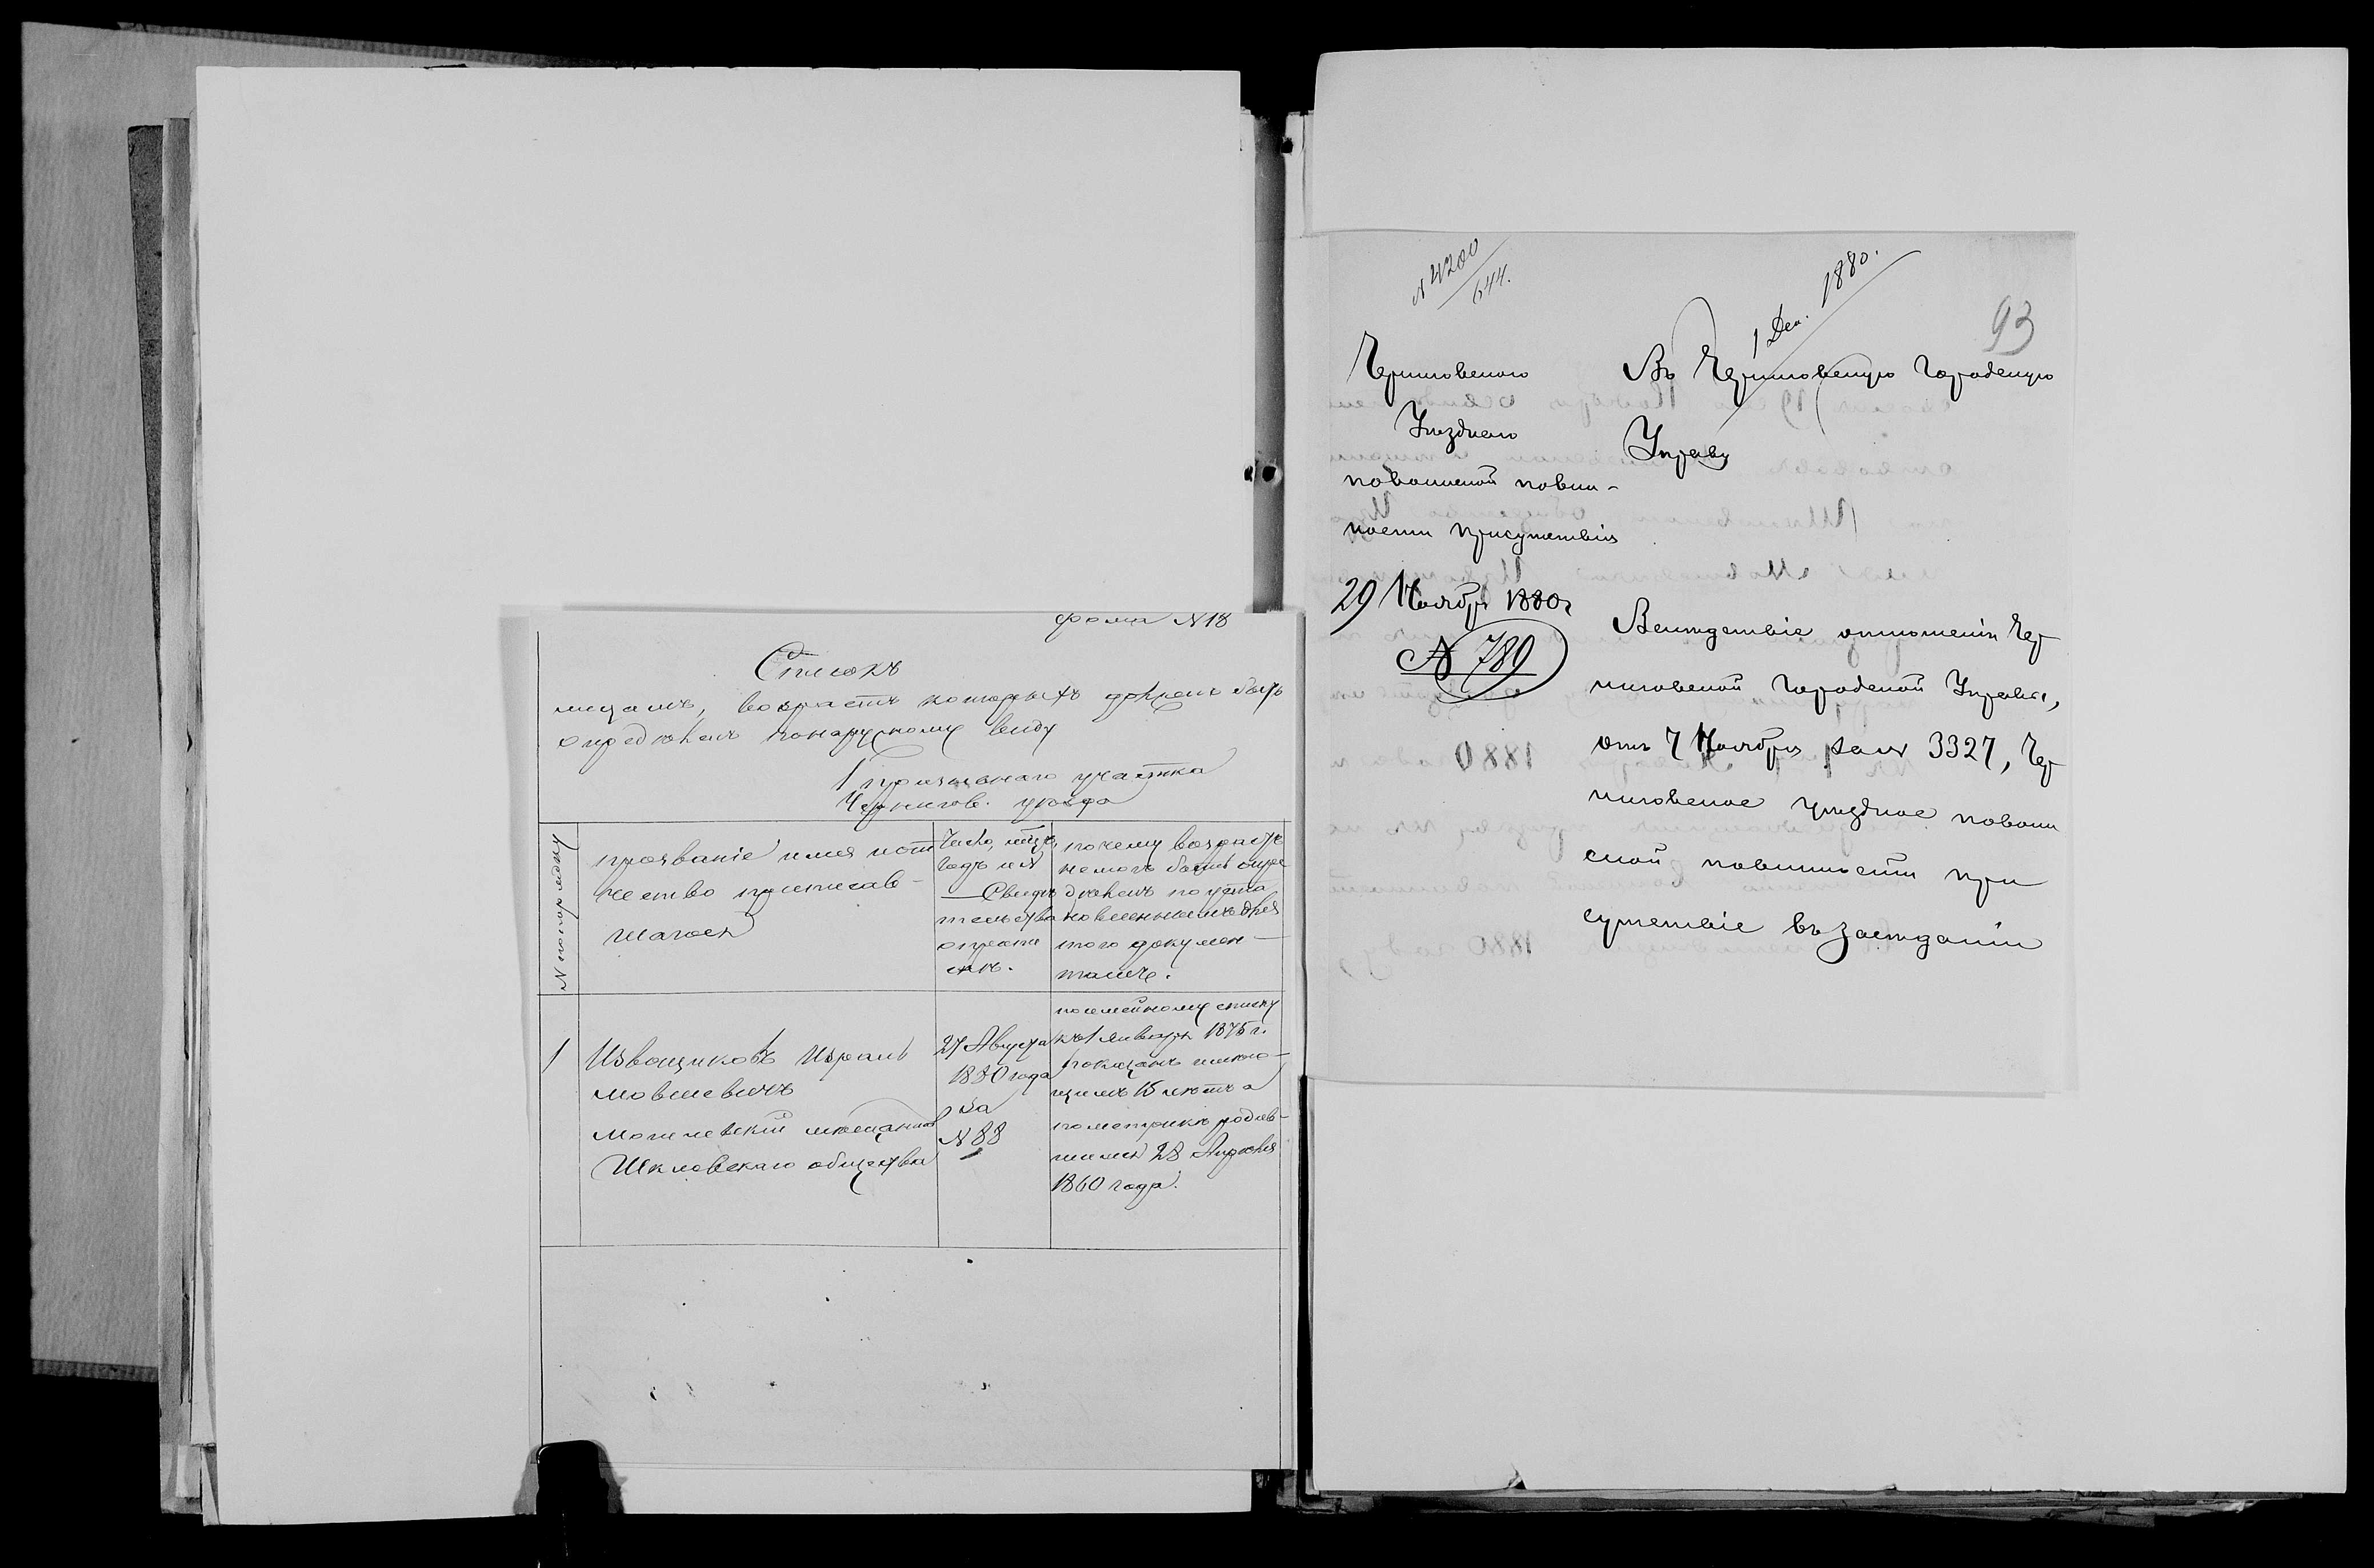 форма N 18
Списокъ
лицамъ, возрастъ которыхъ долженъ быть
опредѣленъ понаружному виду
1 призывнаго участка
Чернигов. уѣзда
N по порядку
прозваніе имя и от
чество приписав-
шагося
Число, мѣць,
годъ и N
Свидѣ
тельства
о припи
скѣ.
почему возрастъ
немогъ быть опре
дѣленъ по уста
новленнымъ для
того докумен-
тамъ.
1
Извощиковъ Израиль
Мовшевичъ
Могилевскій мѣщанинъ
Шкловскаго общества
27 Августа
1880 года
за
N 88
посемейному списку
къ 1 января 1875 г.
показанъ имѣю-
щимъ 15 лѣтъ а
пометрикѣ родив-
шимся 28 Апрѣля
1860 года.
N 4200
644.
1 Дек. 1880.
93
Черниговскаго
Уѣзднаго
повоинской повин-
ности присутствія
29 Ноября 1880 г
N 789
Въ Черниговскую Городскую
Управу
Вслѣдствіе отношенія Чер
ниговской Городской Управы,
отъ 7 Ноября за N 3327, Чер
ниговское уѣздное повоин
ской повинности при
сутствіе въ засѣданіи